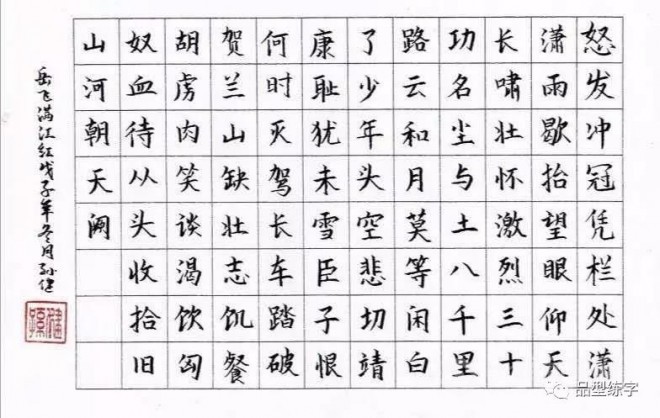 怒发冲冠凭栏处潇
潇雨歇抬望眼仰天
长啸壮怀激烈三十
功名尘与土八千里
路云和月莫等闲白
了少年头空悲切靖
康耻犹未雪臣子恨
何时灭驾长车踏破
贺兰山缺壮志饥餐
胡虏肉笑谈渴饮匈
奴血待从头收拾旧
山河朝天阙
岳飞满江红戊子年冬月孙健
品型练字